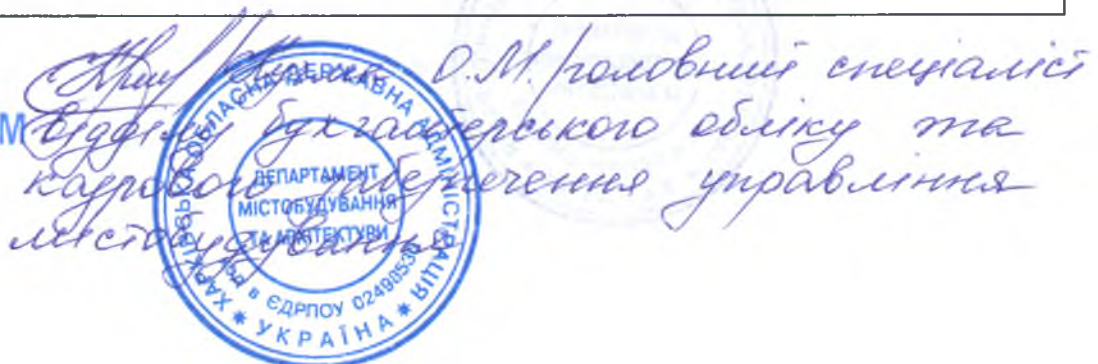 О.М./головний спеціаліст
М
відділу бухгалтерського обліку та
кадрового забезпечення управління
містобудування
ХАРКІВСЬКА ОБЛАСНА ДЕРЖАВНА АДМІНІСТРАЦІЯ
ДЕПАРТАМЕНТ
МІСТОБУДУВАННЯ
ТА АРХІТЕКТУРИ
КОД в ЄДРПОУ 02498530
* УКРАЇНА *